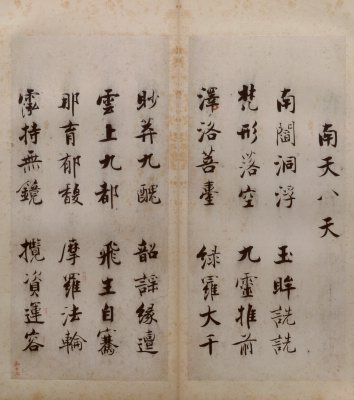 南天八天
南閻洞浮 玉眸詵詵
梵形落空 九靈推前
澤洛菩臺 綠羅大千
眇莽九醜 韶謠緣邅
雲上九都 飛生自騫
那育郁馥 摩羅法輪
霐持無鏡 攬資運容